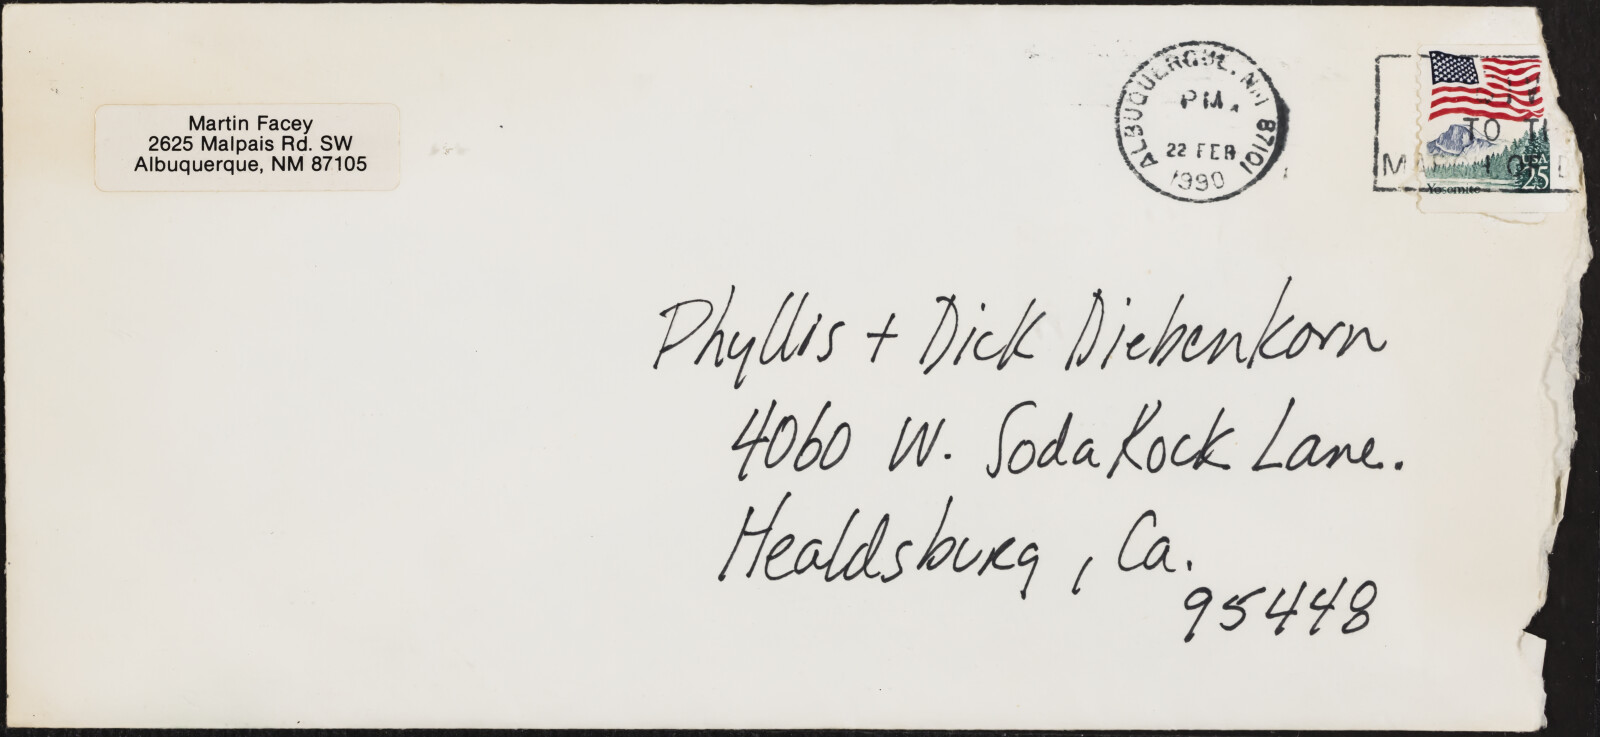 Martin Facey
2625 Malpais Rd. SW
Albuquerque, NM 87105
ALBUQUERQUE, NM 87101
PM
22 FEB
1990
TO
USA
25
Yosemite
Phyllis + Dick Diebenkorn
4060 W. Soda Rock Lane.
Healdsburg, Ca.
95448